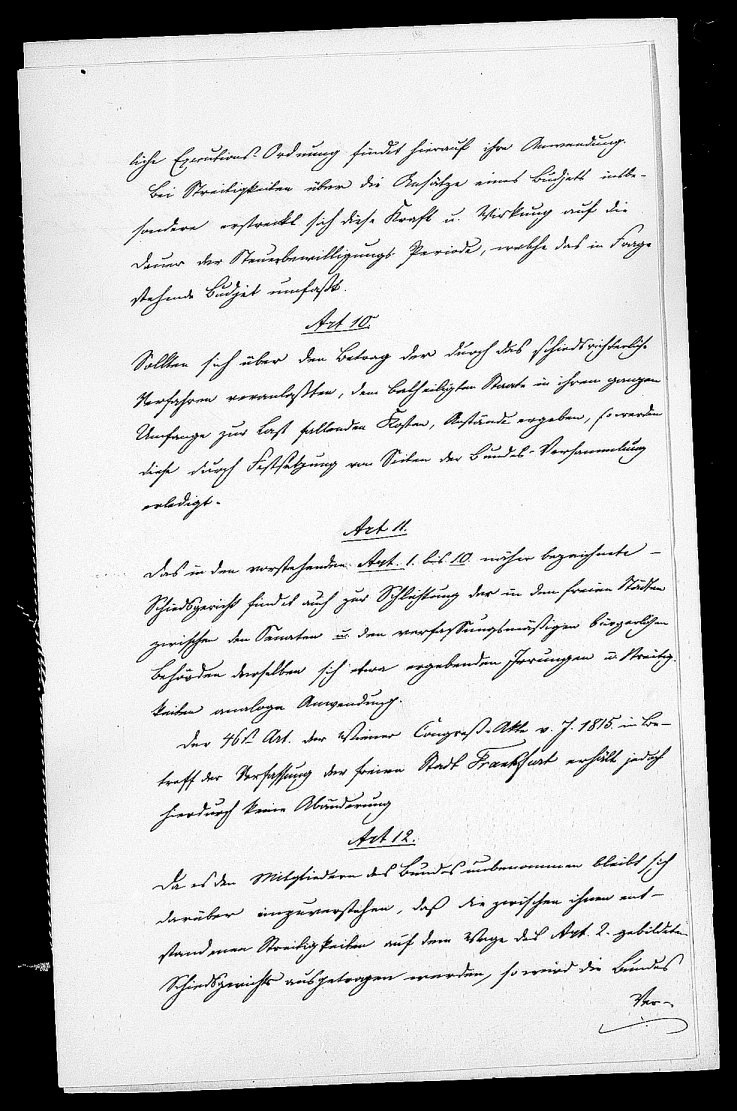 liche Executions-Ordnung findet hierauf ihre Anwendung.
Bei Streitigkeiten über die Ansätze eines Budjets insbe-
sondere erstreckt sich diese Kraft u. Wirkung auf die
Dauer der Steuerbewilligungs Periode, welche das in Frage
stehende Budjet umfaßt.
Art 10.
Sollten sich über den Betrag der durch das schiedsrichterliche
Verfahren veranlaßten, dem betheiligten Staate in ihrem ganzen
Umfange zur Last fallenden Kosten, Anstände ergeben, so werden
diese durch Festsetzung von Seiten der Bundes-Versammlung
erledigt.
Art 11.
Das in den vorstehenden Art. 1. bis 10. näher bezeichnete
Schiedsgericht findet auch zur Schlichtung der in den freien Städten
zwischen den Senaten u. den verfassungsmäßigen bürgerlichen
Behörden derselben sich etwa ergebenden Irrungen u. Streitig-
keiten analoge Anwendung.
Der 46te Art. der Wiener Congreß-Akte v. J. 1815. in Be-
treff der Verfassung der freien Stadt Frankfurt erhält jedoch
hierdurch keine Abänderung
Art 12.
Da es den Mitgliedern des Bundes unbenommen bleibt, sich
darüber einzuverstehen, daß die zwischen ihnen ent-
standenen Streitigkeiten auf dem Wege des Art. 2. gebildeten
Schiedsgerichts ausgetragen werden, so wird die Bundes
Ver-